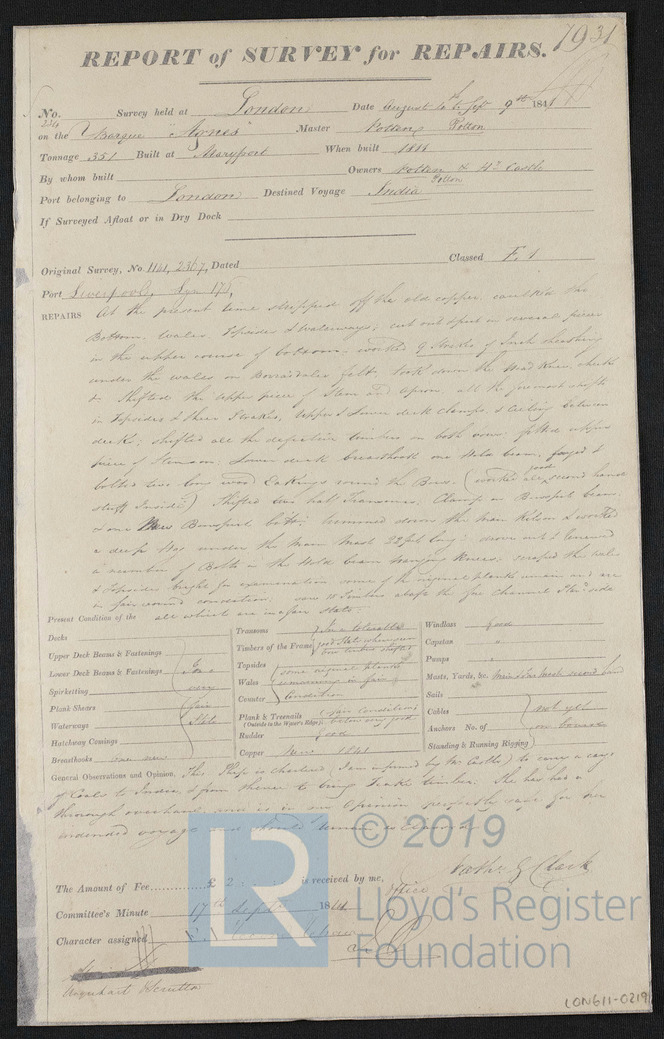 7931
REPORT of SURVEY for REPAIRS.
No. Survey held at London Date August 10 to Sept 9th 1841
on the Barque "Agnes" Master Potton
Tonnage 351 Built at Maryport When built 1811
By whom built Owners Potton & Castle
Port belonging to London Destined Voyage India
If Surveyed Afloat or in Dry Dock
Original Survey, No. 1141, 2367, Dated Classed F. 1
Port Liverpool,
REPAIRS At the present time stripped off the old copper, caulked the
Bottom, Wales, Topsides & Waterways; cut out in several pieces
in the upper course of bottom, worked 9 strakes of Inch sheathing
under the wales on felt. Took down the Head Knees, cheeks
& Shifted the upper piece of Stem and apron, all the foremost
in Topsides & three Strakes, Upper & Lower deck clamps, & ceiling between
decks; shifted all the defective timbers on both bows, upper
piece of Stemson, Lower deck breasthook one beam,
bolted two long wood Ekeings round the Bows. (worked good second hand
stuff Inside) Shifted two half Transoms, Clamp on Bowsprit beam,
& one New Bowsprit bitt; down the Main Kelson & worked
a deep under the Main Mast 22 feet long: drove out & renewed
a number of Bolts in the Hold beam hanging Knees: scraped the wales
& Topsides bright for examination some of the original planks remain and are
in fair sound condition; saw 18 Timbers abaft the fore Channel side
all which are in a fair state.
Present Condition of the
Decks
Upper Deck Beams & Fastenings
Lower Deck Beams & Fastenings
Spirketting
Plank Shears fair
Waterways State
Hatchway Comings
Breasthooks one new
Transoms In a tolerable
Timbers of the Frame good State where seen
Topsides some original planks
Wales remaining in fair
Counter condition
Plank & Treenails fair condition
(Outside to the Water's Edge) below very good
Rudder Good
Copper New 1841
Windlass good
Capstan "
Pumps "
Masts, Yards, &c. second hand
Sails
Cables not yet
Anchors No. of on board
Standing & Running Rigging
General Observations and Opinion, This Ship is chartered (I am informed by Mr Castle) to carry a cargo
of Coals to India, & from thence to bring Teake timber. She has had a
thorough overhaul, and is in our Opinion perfectly safe for her
intended voyage and should
Nathl. G Clark
The Amount of Fee £ 2 is received by me,
office
Committee's Minute 17th Septr 1841
Character assigned
Urquhart
© 2019
LR
Lloyd's Register
Foundation
LON611-0219